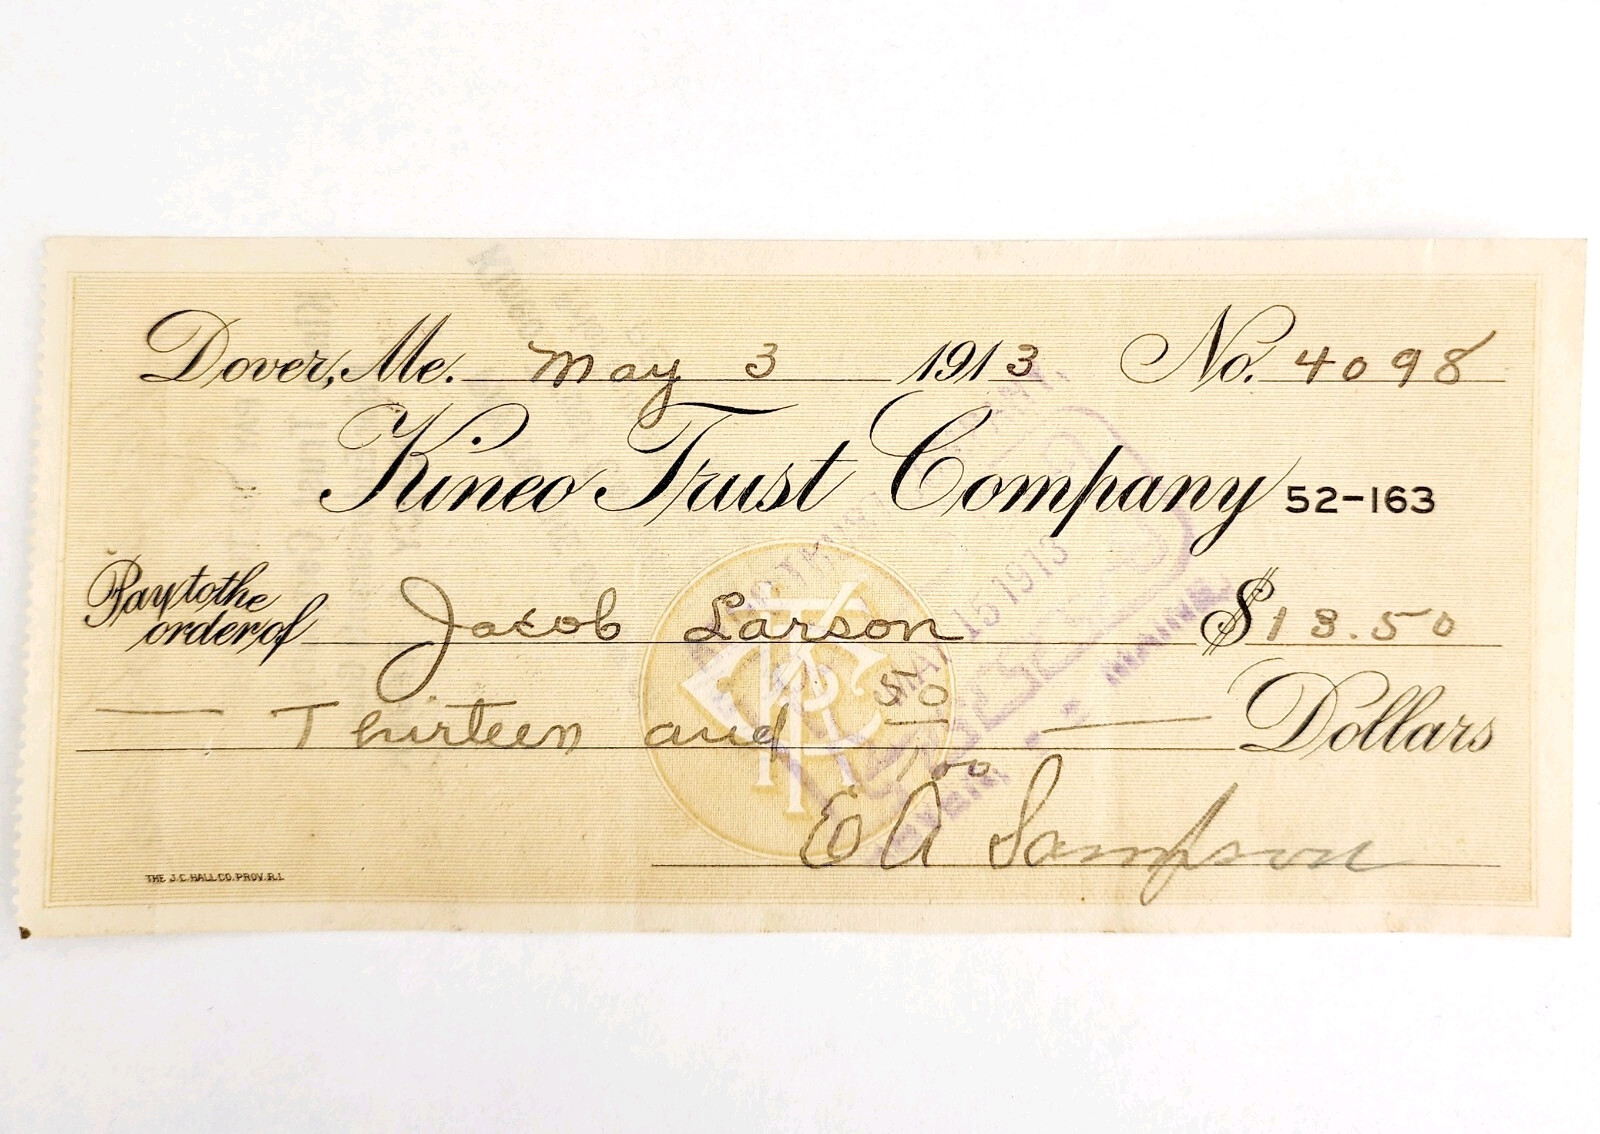 Dover, Me. May 3 1913 No. 4098
Kineo Trust Company 52-163
Pay to the order of Jacob Larson $13.50
Thirteen and 50/100 Dollars
E A Sampson
THE J.C. HALL CO. PROV. R.I.
KTC
MAY 15 1913
MAINE